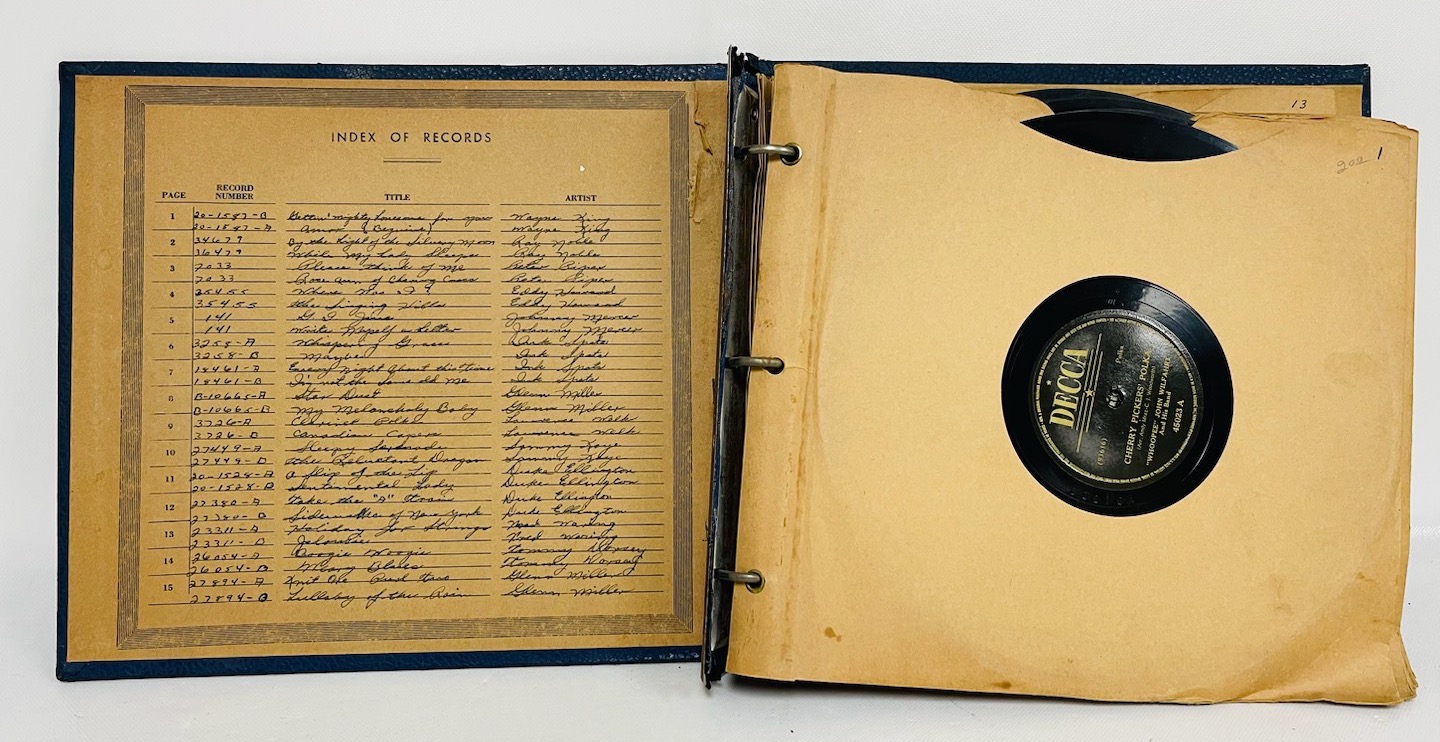 INDEX OF RECORDS
PAGE RECORD NUMBER TITLE ARTIST
1 20-1587-B Gettin' mighty lonesome for you Wayne King
20-1587-A Amor (Beguine) Wayne King
2 By the Light of the Silvery Moon Ray Noble
36479 While My Lady Sleeps Ray Noble
3 7033 Please think of Me Peter Piper
7033 Rose Ann of Charing Cross Peter Piper
4 35455 Where Was I? Eddy Howard
35455 the Singing Hills Eddy Howard
5 141 G. I. Jive Johnny Mercer
141 Write Myself a Letter Johnny Mercer
6 3258-A Whispering Grass Ink Spots
3258-B Maybe Ink Spots
7 18461-A Every Night About this time Ink Spots
18461-B I'm not the same old Me Ink Spots
8 B-10665-A Star Dust Glenn Miller
B-10665-B My Melancholy Baby Glenn Miller
9 3726-A Clarinet Polka Lawrence Welk
3726-B Canadian Capers Lawrence Welk
10 27449-A Sammy Kaye
27449-B the Reluctant Dragon Sammy Kaye
11 20-1528-A a Slip of the Lip Duke Ellington
20-1528-B Sentimental Lady Duke Ellington
12 27380-A Take the "A" Train Duke Ellington
27380-B Sidewalks of New York Duke Ellington
13 23311-A Holiday for Strings Fred Waring
23311-B Jalousie Fred Waring
14 26054-A Boogie Woogie Tommy Dorsey
26054-B Weary Blues Tommy Dorsey
15 27894-A Knit One Purl two Glenn Miller
27894-B Lullaby of the Rain Glenn Miller
13
1
DECCA
(93616) Polka
CHERRY PICKERS' POLKA
"WHOOPEE" JOHN WILFAHRT
And His Band
45023 A